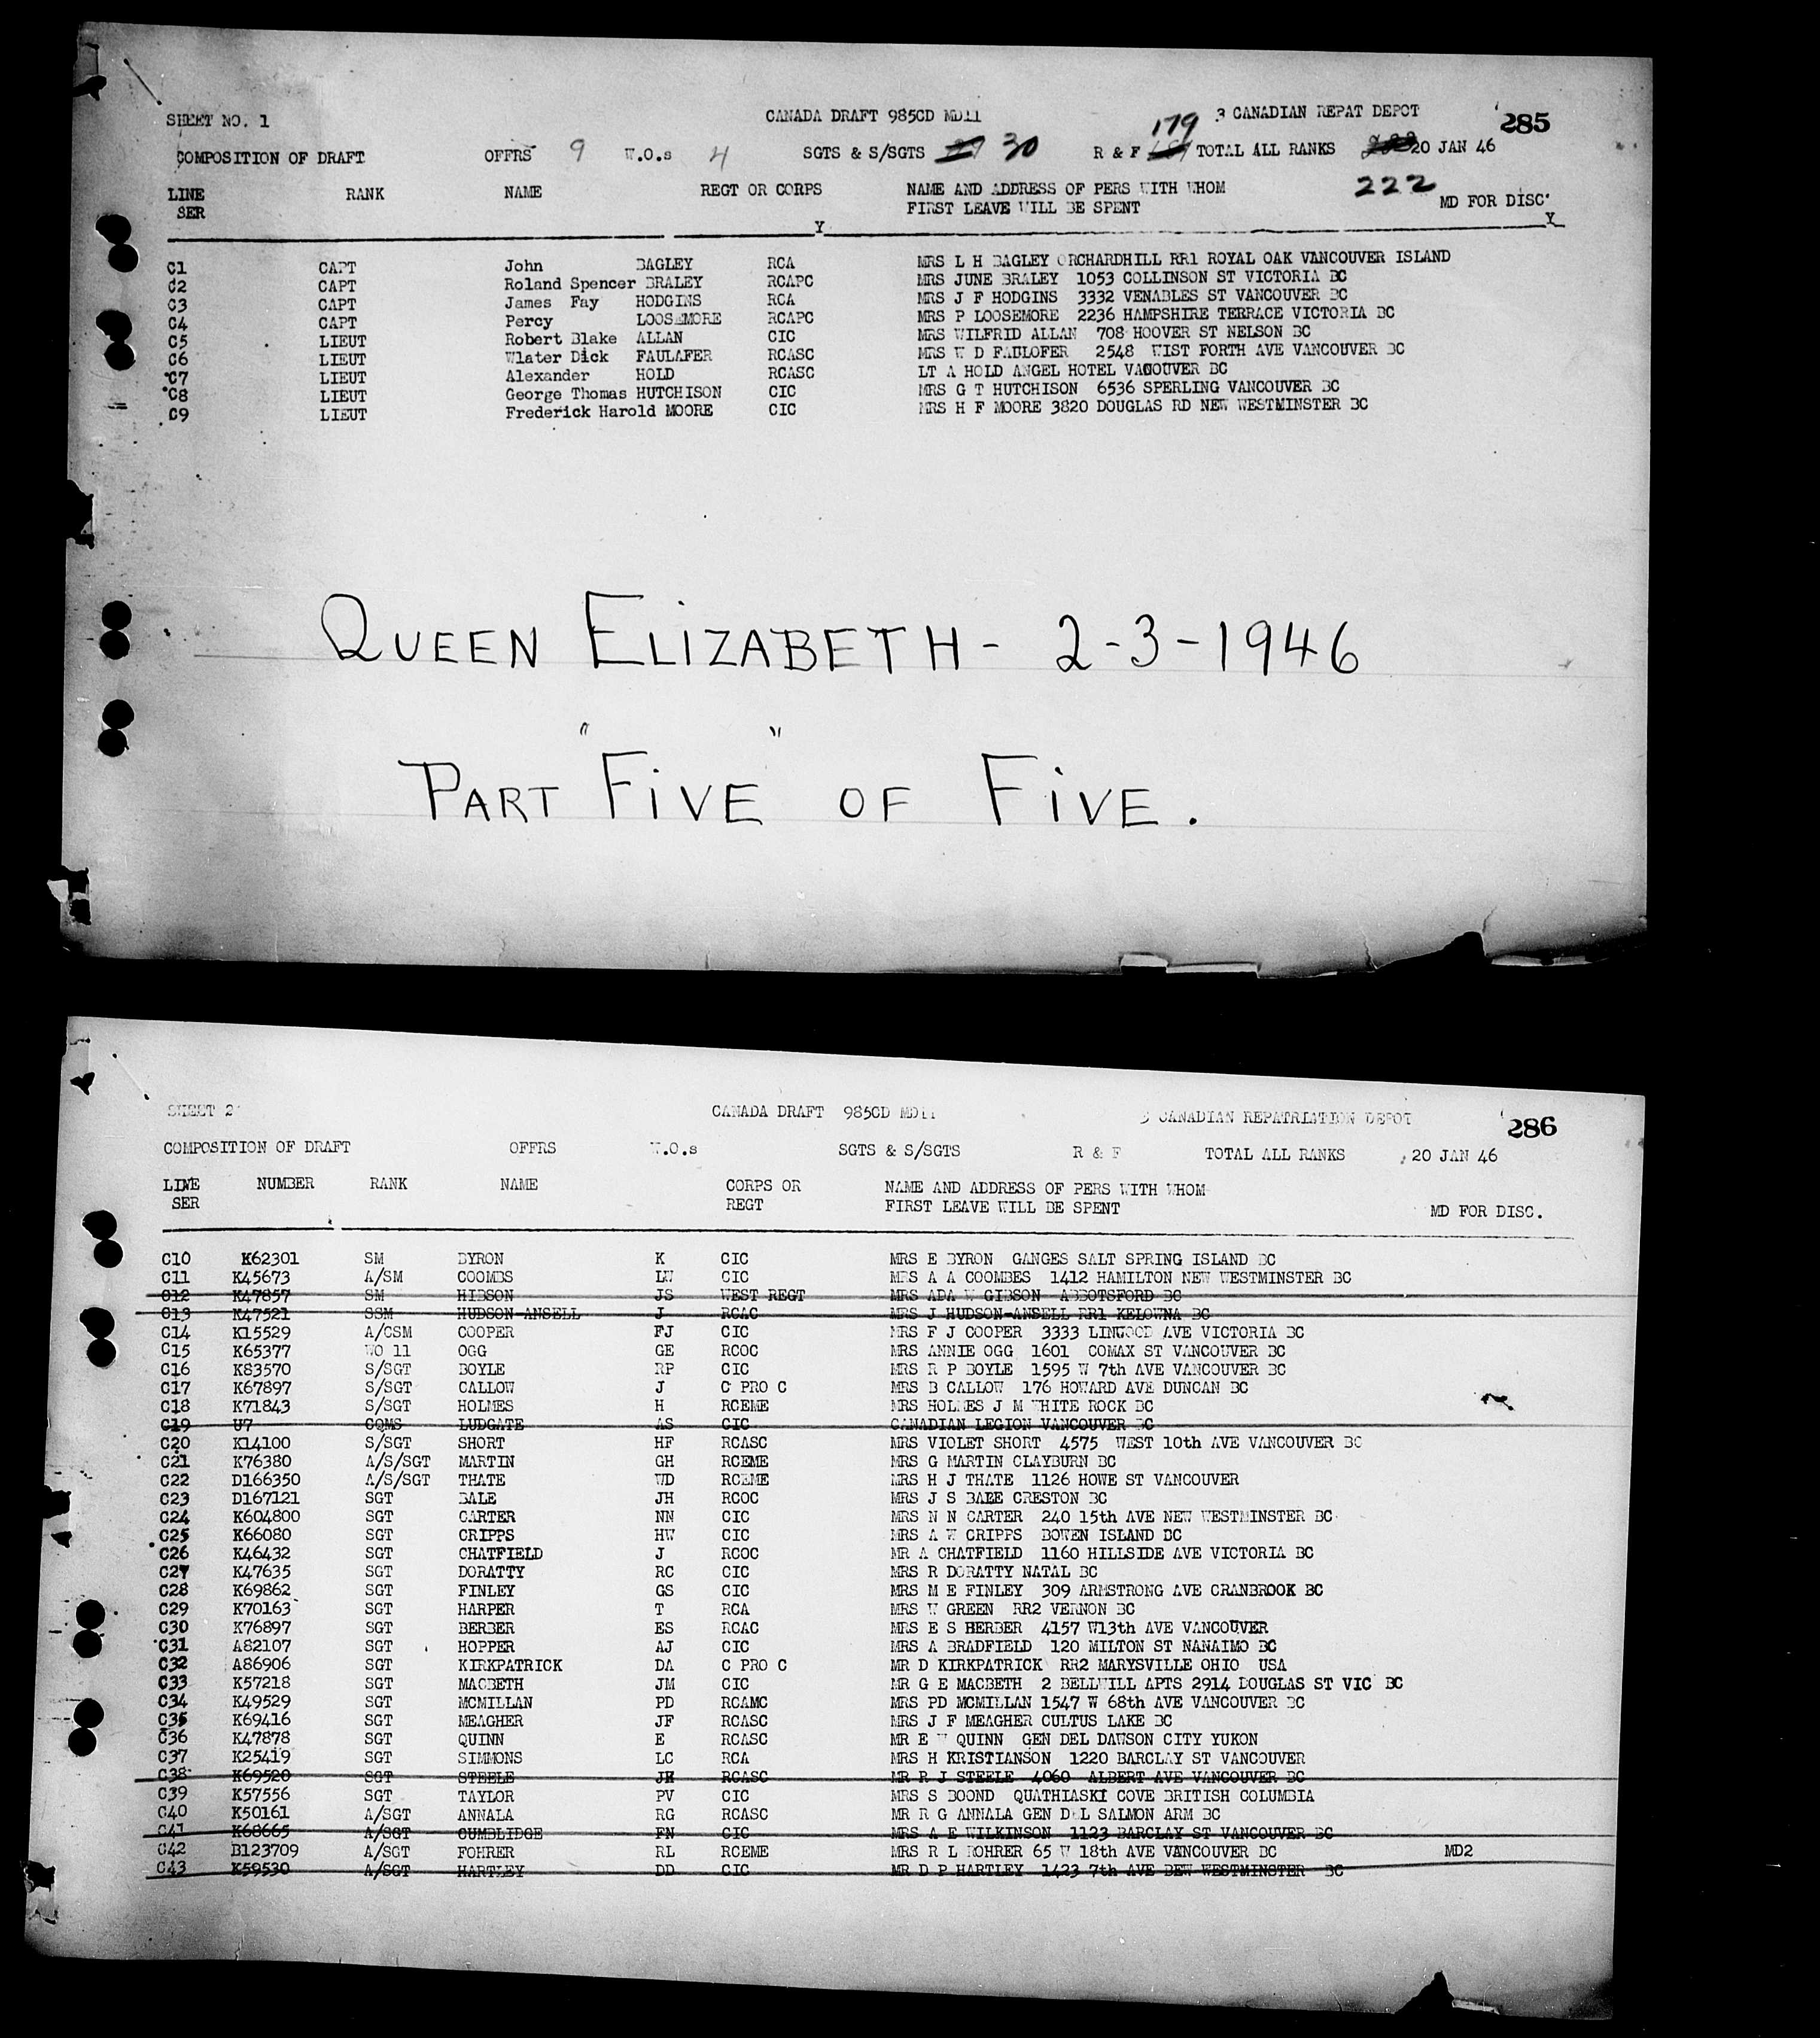 SHEET NO. 1 CANADA DRAFT 985CD MD11 3 CANADIAN REPAT DEPOT 285
179
COMPOSITION OF DRAFT OFFRS 9 W.O.s 4 SGTS & S/SGTS 30 R & F TOTAL ALL RANKS 20 JAN 46
222
LINE RANK NAME REGT OR CORPS NAME AND ADDRESS OF PERS WITH WHOM
SER FIRST LEAVE WILL BE SPENT MD FOR DISC.
Y Y
C1 CAPT John BAGLEY RCA MRS L H BAGLEY ORCHARDHILL RR1 ROYAL OAK VANCOUVER ISLAND
C2 CAPT Roland Spencer BRALEY RCAPC MRS JUNE BRALEY 1053 COLLINSON ST VICTORIA BC
C3 CAPT James Fay HODGINS RCA MRS J F HODGINS 3332 VENABLES ST VANCOUVER BC
C4 CAPT Percy LOOSEMORE RCAPC MRS P LOOSEMORE 2236 HAMPSHIRE TERRACE VICTORIA BC
C5 LIEUT Robert Blake ALLAN CIC MRS WILFRID ALLAN 708 HOOVER ST NELSON BC
C6 LIEUT Wlater Dick FAULAFER RCASC MRS W D FAULOFER 2548 WIST FORTH AVE VANCOUVER BC
C7 LIEUT Alexander HOLD RCASC LT A HOLD ANGEL HOTEL VACOUVER BC
C8 LIEUT George Thomas HUTCHISON CIC MRS G T HUTCHISON 6536 SPERLING VANCOUVER BC
C9 LIEUT Frederick Harold MOORE CIC MRS H F MOORE 3820 DOUGLAS RD NEW WESTMINSTER BC
QUEEN ELIZABETH - 2-3-1946
PART "FIVE" OF FIVE.
SHEET 2 CANADA DRAFT 985CD MD11 3 CANADIAN REPATRIATION DEPOT 286
COMPOSITION OF DRAFT OFFRS W.O.s SGTS & S/SGTS R & F TOTAL ALL RANKS 20 JAN 46
LINE NUMBER RANK NAME CORPS OR NAME AND ADDRESS OF PERS WITH WHOM
SER REGT FIRST LEAVE WILL BE SPENT MD FOR DISC.
C10 K62301 SM BYRON K CIC MRS E BYRON GANGES SALT SPRING ISLAND BC
C11 K45673 A/SM COOMBS LW CIC MRS A A COOMBES 1412 HAMILTON NEW WESTMINSTER BC
C12 K47857 SM HIBSON JS WEST REGT MRS ADA W GIBSON ABBOTSFORD BC
C13 K47521 SSM HUDSON-ANSELL J RCAC MRS J HUDSON-ANSELL RR1 KELOWNA BC
C14 K15529 A/CSM COOPER FJ CIC MRS F J COOPER 3333 LINWOOD AVE VICTORIA BC
C15 K65377 WO 11 OGG GE RCOC MRS ANNIE OGG 1601 COMAX ST VANCOUVER BC
C16 K83570 S/SGT BOYLE RP CIC MRS R P BOYLE 1595 W 7th AVE VANCOUVER BC
C17 K67897 S/SGT CALLOW J C PRO C MRS B CALLOW 176 HOWARD AVE DUNCAN BC
C18 K71843 S/SGT HOLMES H RCEME MRS HOLMES J M WHITE ROCK BC
C19 U7 CQMS LUDGATE AS CIC CANADIAN LEGION VANCOUVER BC
C20 K14100 S/SGT SHORT HF RCASC MRS VIOLET SHORT 4575 WEST 10th AVE VANCOUVER BC
C21 K76380 A/S/SGT MARTIN GH RCEME MRS G MARTIN CLAYBURN BC
C22 D166350 A/S/SGT THATE WD RCEME MRS H J THATE 1126 HOWE ST VANCOUVER
C23 D167121 SGT BALE JH RCOC MRS J S BALE CRESTON BC
C24 K604800 SGT CARTER NN CIC MRS N N CARTER 240 15th AVE NEW WESTMINSTER BC
C25 K66080 SGT CRIPPS HW CIC MRS A W CRIPPS BOWEN ISLAND BC
C26 K46432 SGT CHATFIELD J RCOC MR A CHATFIELD 1160 HILLSIDE AVE VICTORIA BC
C27 K47635 SGT DORATTY RC CIC MRS R DORATTY NATAL BC
C28 K69862 SGT FINLEY GS CIC MRS M E FINLEY 309 ARMSTRONG AVE CRANBROOK BC
C29 K70163 SGT HARPER T RCA MRS W GREEN RR2 VERNON BC
C30 K76897 SGT BERBER ES RCAC MRS E S HERBER 4157 W13th AVE VANCOUVER
C31 A82107 SGT HOPPER AJ CIC MRS A BRADFIELD 120 MILTON ST NANAIMO BC
C32 A86906 SGT KIRKPATRICK DA C PRO C MR D KIRKPATRICK RR2 MARYSVILLE OHIO USA
C33 K57218 SGT MACBETH JM CIC MR G E MACBETH 2 BELLWILL APTS 2914 DOUGLAS ST VIC BC
C34 K49529 SGT MCMILLAN PD RCAMC MRS PD MCMILLAN 1547 W 68th AVE VANCOUVER BC
C35 K69416 SGT MEAGHER JF RCASC MRS J F MEAGHER CULTUS LAKE BC
C36 K47878 SGT QUINN E RCASC MR E W QUINN GEN DEL DAWSON CITY YUKON
C37 K25419 SGT SIMMONS LC RCA MRS H KRISTIANSON 1220 BARCLAY ST VANCOUVER
C38 K69520 SGT STEELE JH RCASC MR R J STEELE 4060 ALBERT AVE VANCOUVER BC
C39 K57556 SGT TAYLOR PV CIC MRS S BOOND QUATHIASKI COVE BRITISH COLUMBIA
C40 K50161 A/SGT ANNALA RG RCASC MR R G ANNALA GEN DEL SALMON ARM BC
C41 K68665 A/SGT CUMBLIDGE FN CIC MRS A E WILKINSON 1123 BARCLAY ST VANCOUVER BC
C42 B123709 A/SGT FOHRER RL RCEME MRS R L ROHRER 65 W 18th AVE VANCOUVER BC MD2
C43 K59530 A/SGT HARTLEY DD CIC MR D P HARTLEY 1423 7th AVE BEW WESTMINSTER BC